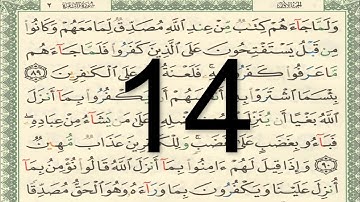 الجزء الأول سورة البقرة ٢
وَلَمَّا جَآءَهُمْ كِتَٰبٌ مِّنْ عِندِ ٱللَّهِ مُصَدِّقٌ لِّمَا مَعَهُمْ وَكَانُوا۟
مِن قَبْلُ يَسْتَفْتِحُونَ عَلَى ٱلَّذِينَ كَفَرُوا۟ فَلَمَّا جَآءَهُم
مَّا عَرَفُوا۟ كَفَرُوا۟ فَلَعْنَةُ عَلَى ٱلْكَٰفِرِينَ ٨٩
بِئْسَمَا ٱشْتَرَوْا۟ يَكْفُرُوا۟ بِمَآ أَنزَلَ
ٱللَّهُ بَغْيًا أَن يَشَآءُ مِنْ عِبَادِهِۦ
فَبَآءُو بِغَضَبٍ عَلَىٰ غَضَبٍ وَلِلْكَٰفِرِينَ عَذَابٌ مُّهِينٌ
٩٠ وَإِذَا قِيلَ لَهُمْ ءَامِنُوا۟ بِمَآ أَنزَلَ ٱللَّهُ قَالُوا۟ نُؤْمِنُ بِمَآ
أُنزِلَ عَلَيْنَا وَيَكْفُرُونَ بِمَا وَرَآءَهُۥ وَهُوَ ٱلْحَقُّ مُصَدِّقًا
14